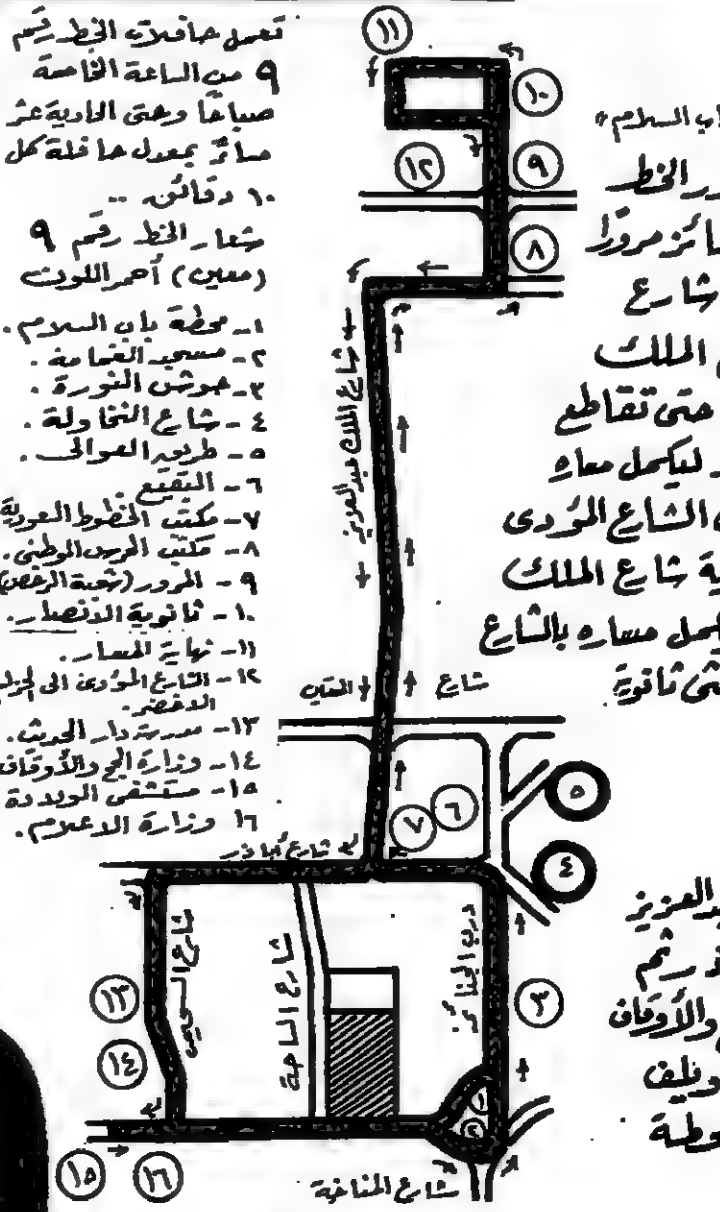 تعمل حافلات الخط رقم
٩ من الساعة الخامسة
صباحًا وحتى الحادية عشر
مساءً بمعدل حافلة كل
١٠ دقائق ..
شعار الخط رقم ٩
(معين) أحمر اللون
١- محطة باب السلام.
٢- مسجد الغمامة.
٣- حوش النورة.
٤- شارع النخاولة.
٥- طريق العوالى.
٦- البقيع
٧- مكتب الخطوط السعودية
٨- مكتب الحرس الوطنى.
٩- المرور (شعبة الرخص)
١٠- ثانوية الأنصار.
١١- نهاية المسار.
١٢- الشارع المؤدى الى
الأخضر.
١٣- مدرسة دار الحديث.
١٤- وزارة الحج والأوقاف
١٥- مستشفى الولادة
١٦ وزارة الاعلام.
باب السلام»
الخط
مرورًا
شارع
الملك
حتى تقاطع
ليكمل مساره
الشارع المؤدى
شارع الملك
مساره بالشارع
ثانوية
العزيز
ثم
والأوقاف
١١
١٠
١٢
٩
٨
شارع الملك عبد العزيز
شارع
٥
٦
٧
٤
شارع أباذر
شارع السحيمى
شارع الساحة
درب الجنائز
٣
١٣
١٤
١
٢
١٥
١٦
شارع المناخة